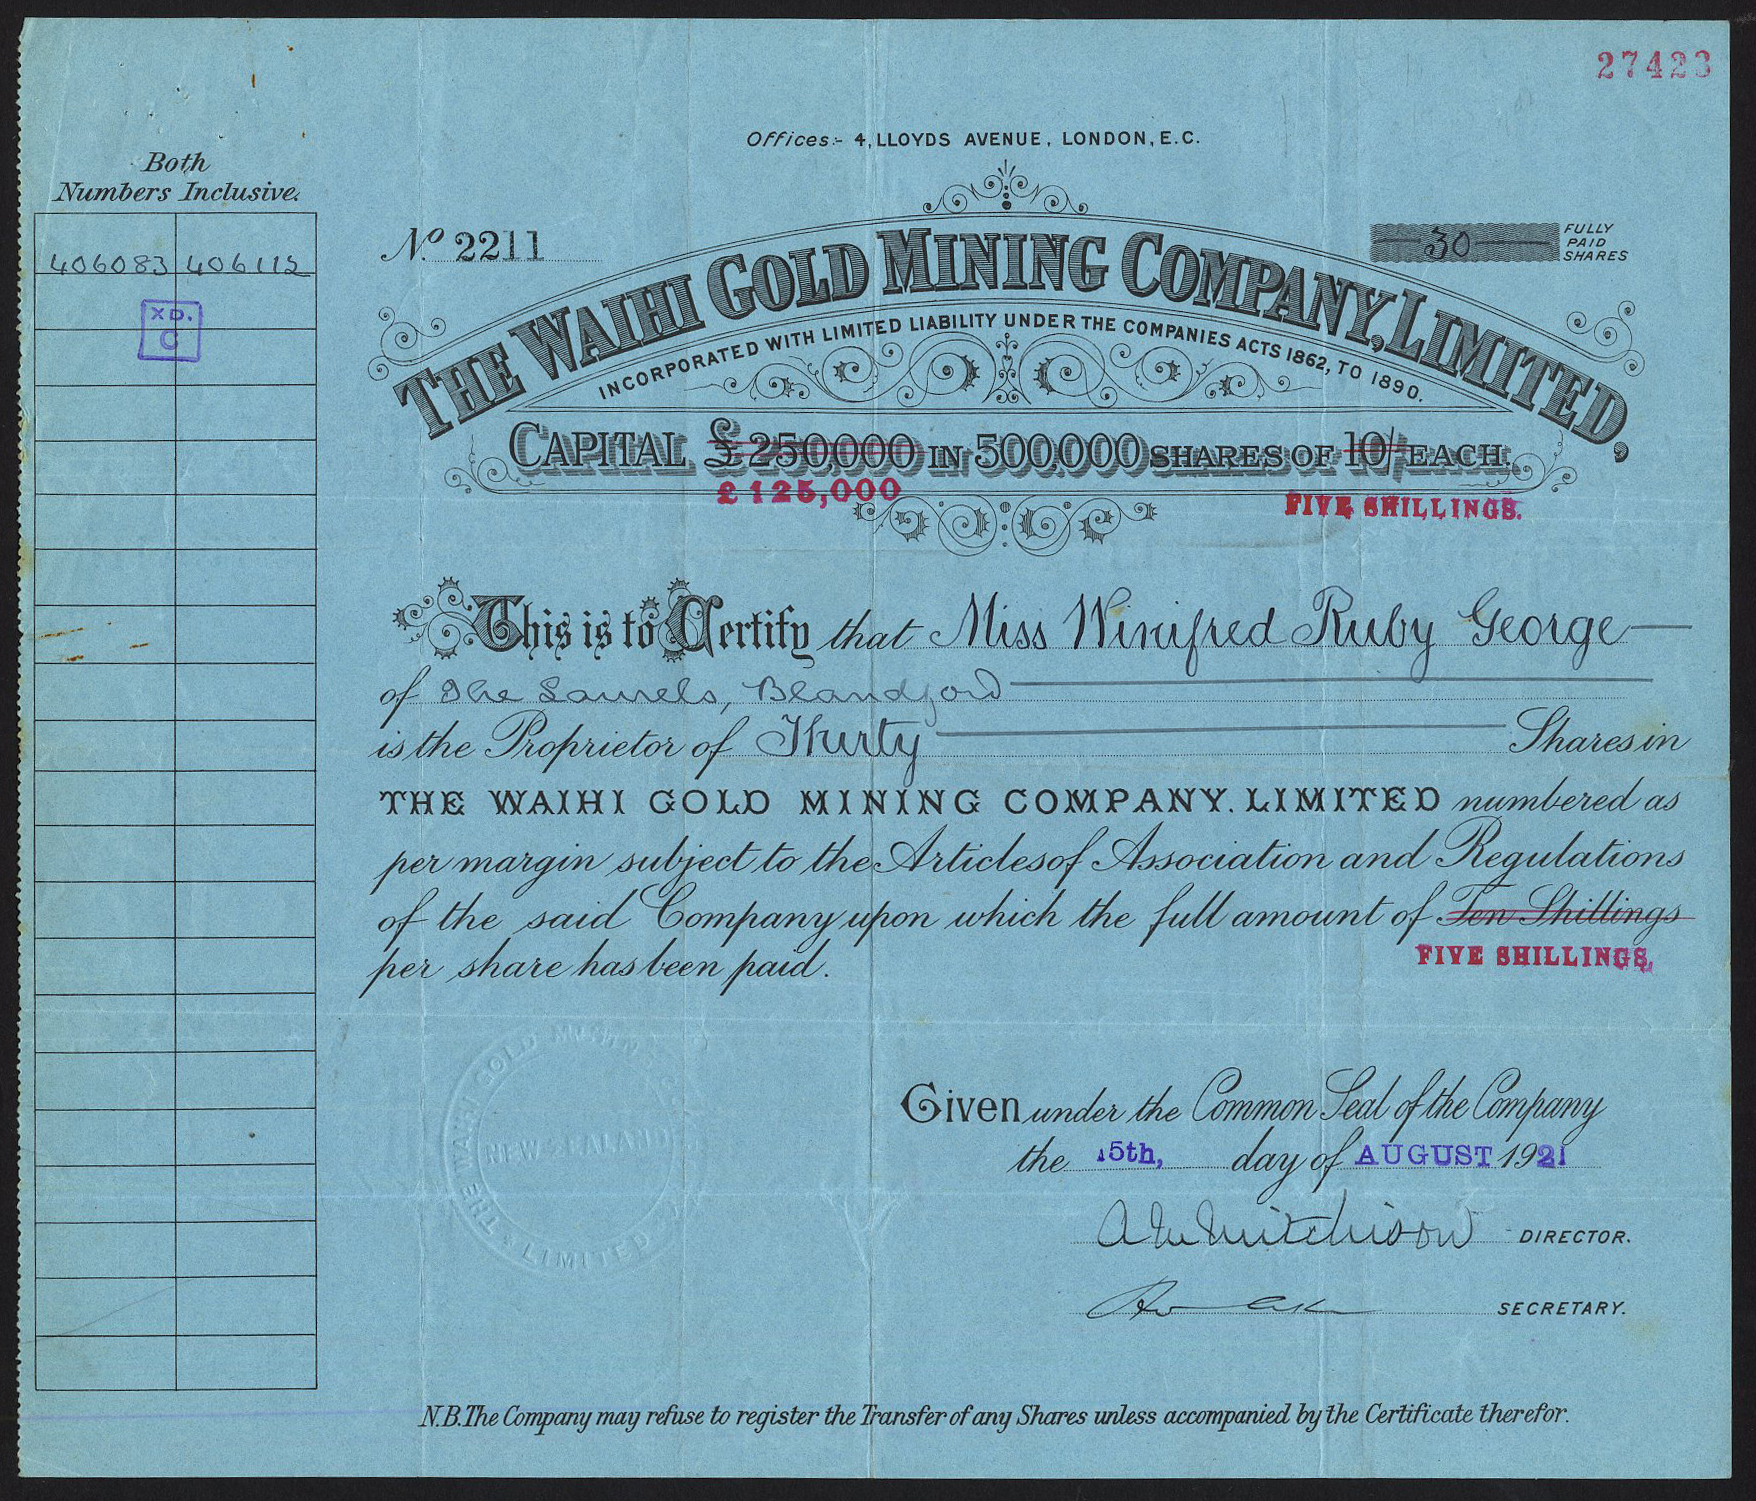 27423
Offices:- 4, LLOYDS AVENUE, LONDON, E.C.
Both
Numbers Inclusive.
406083 406112
XD.
C
No. 2211
30 FULLY PAID SHARES
THE WAIHI GOLD MINING COMPANY, LIMITED,
INCORPORATED WITH LIMITED LIABILITY UNDER THE COMPANIES ACTS 1862, TO 1890.
CAPITAL £250,000 IN 500,000 SHARES OF 10/- EACH.
£125,000 FIVE SHILLINGS.
This is to Certify that Miss Winifred Ruby George
of The Laurels, Blandford
is the Proprietor of Thirty Shares in
THE WAIHI GOLD MINING COMPANY. LIMITED numbered as
per margin subject to the Articles of Association and Regulations
of the said Company upon which the full amount of Ten Shillings
FIVE SHILLINGS.
per share has been paid.
THE WAIHI GOLD MINING LIMITED
NEW ZEALAND
Given under the Common Seal of the Company
the 15th, day of AUGUST 1921
Mitchison DIRECTOR.
SECRETARY.
N.B. The Company may refuse to register the Transfer of any Shares unless accompanied by the Certificate therefor.